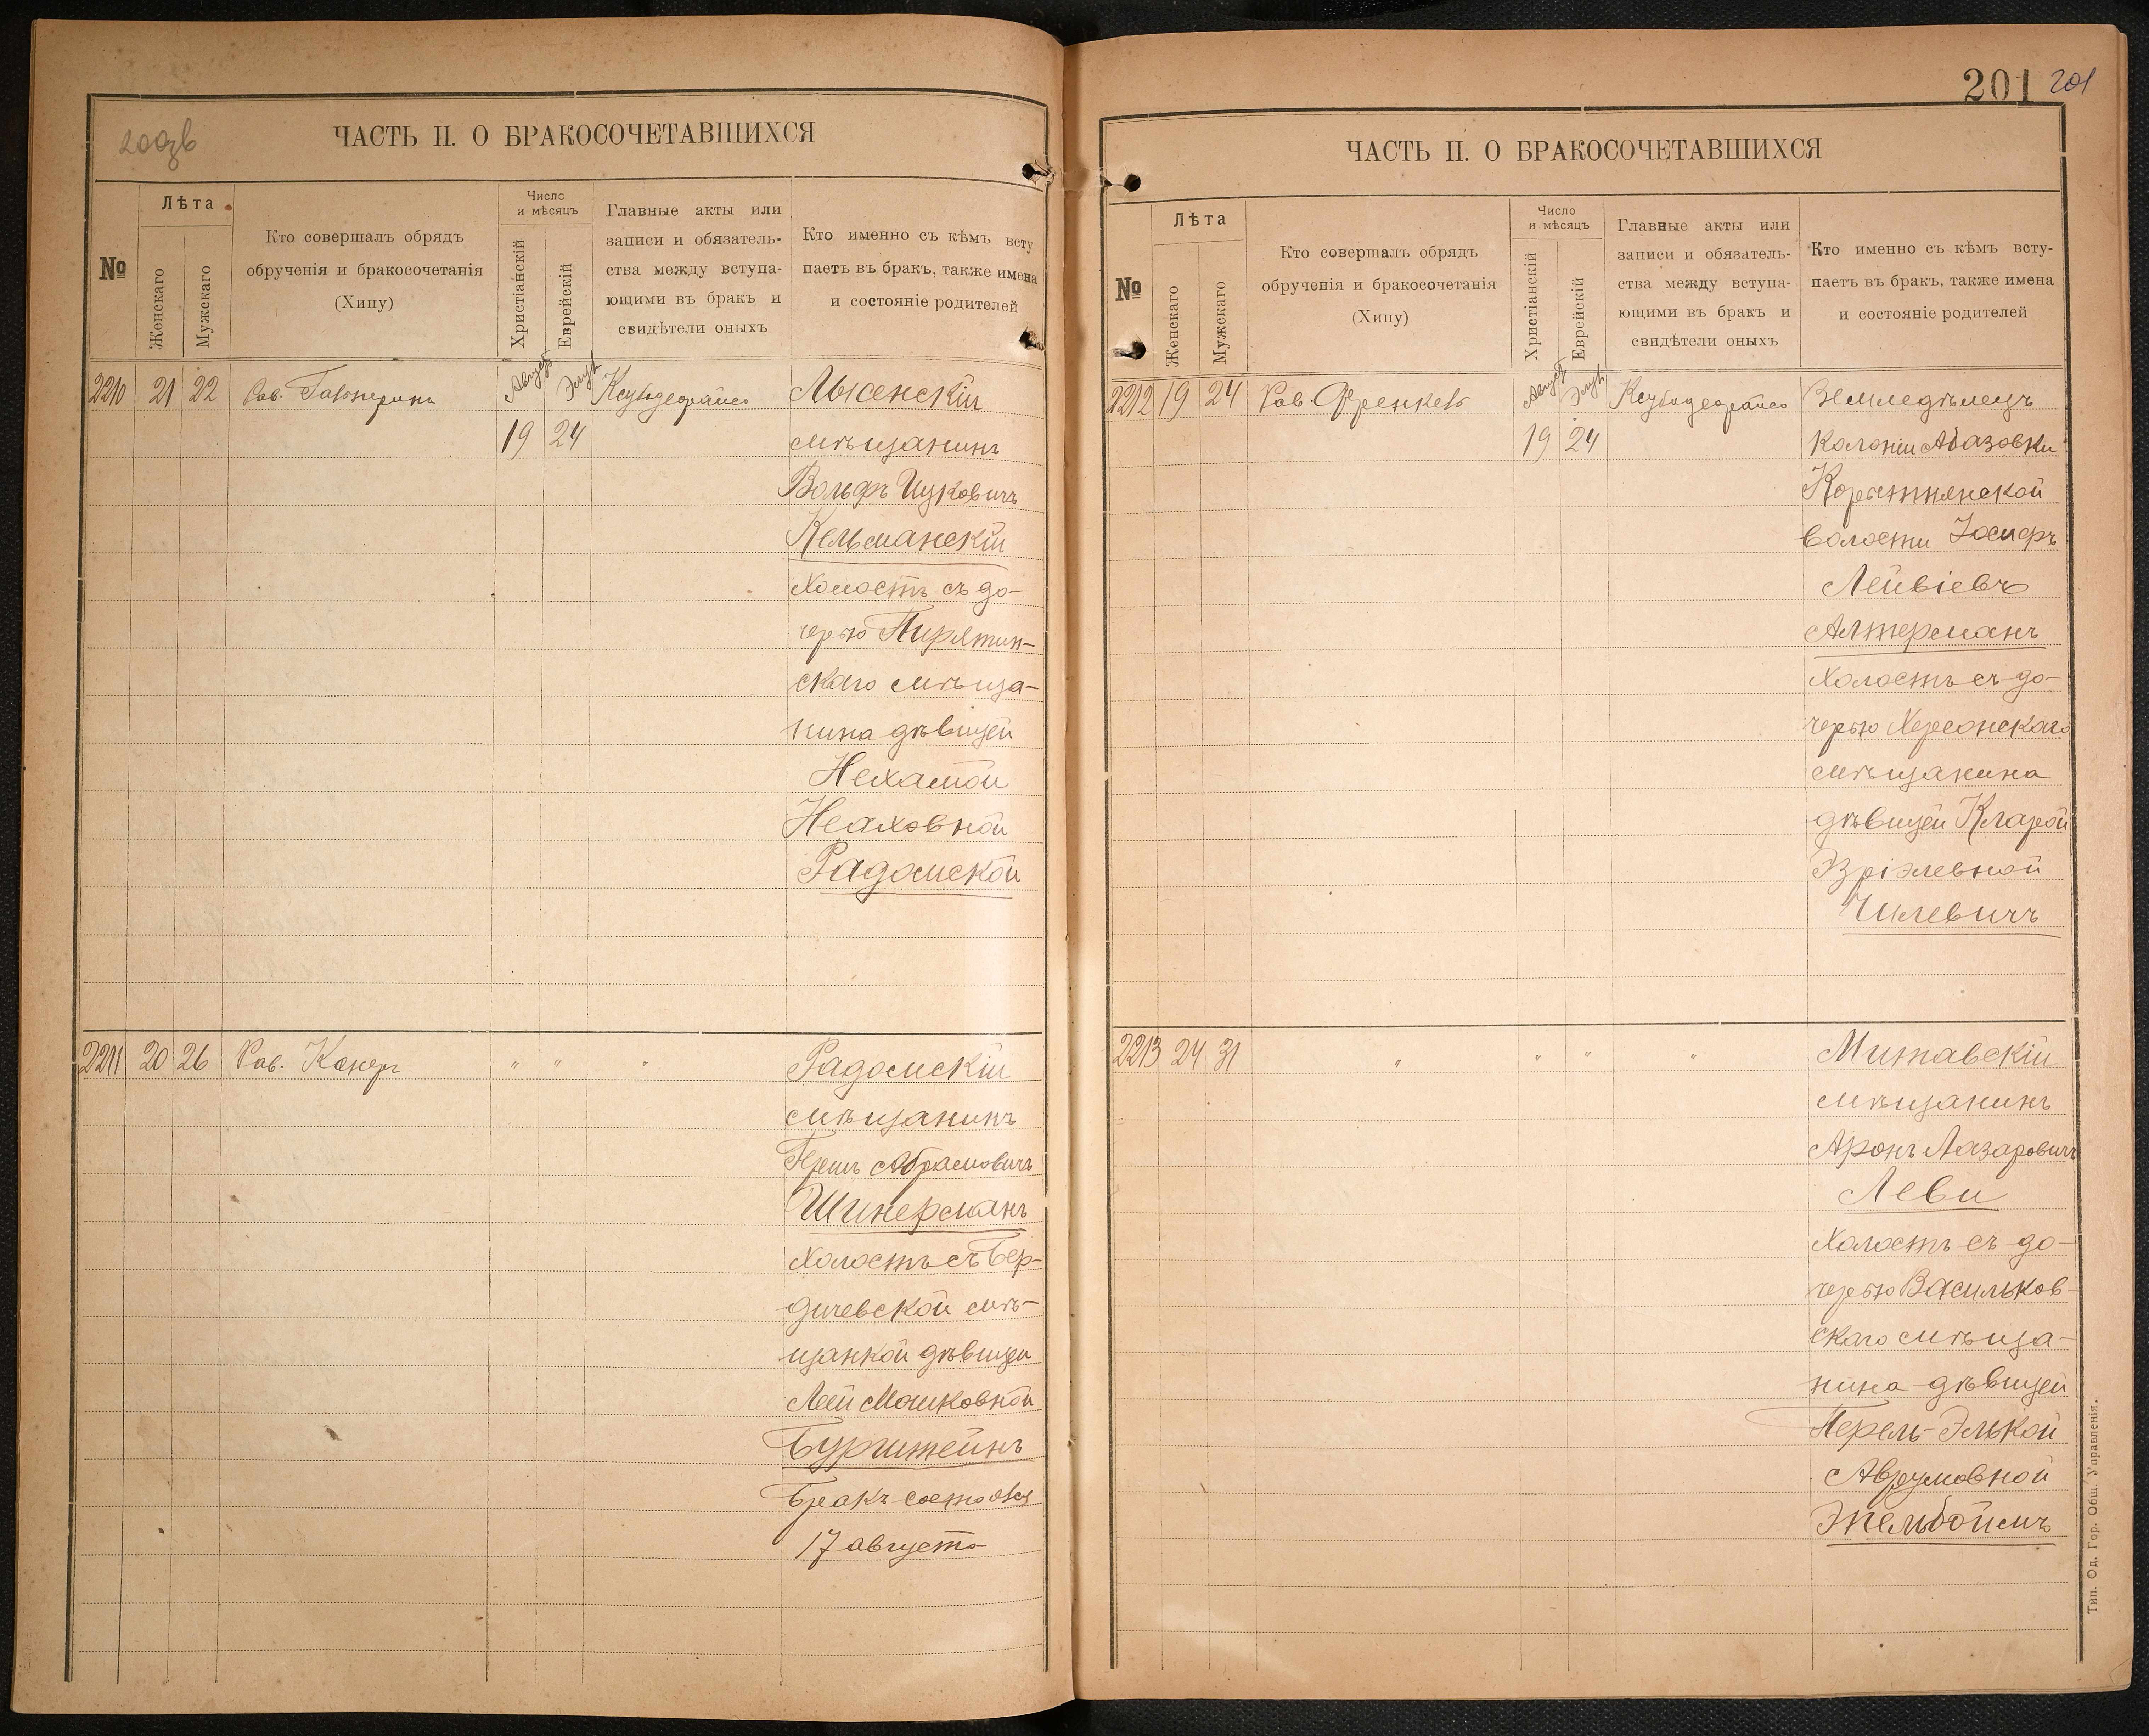 200зв
ЧАСТЬ II. О БРАКОСОЧЕТАВШИХСЯ
№
Лѣта
Женскаго
Мужскаго
Кто совершалъ обрядъ
обрученія и бракосочетанія
(Хипу)
Число
и мѣсяцъ
Христіанскій
Еврейскій
Главные акты или
записи и обязатель-
ства между вступа-
ющими въ бракъ и
свидѣтели оныхъ
Кто именно съ кѣмъ всту
паетъ въ бракъ, также имена
и состояніе родителей
2210 21 22 Рав. Август Элул Лысенскій
19 24 мѣщанинъ
Вольфъ Ицковичъ
Кельманскій
холостъ съ до-
черью Пирятин-
скаго мѣща-
нина дѣвицей
Нехамой
Ноаховной
Радомской
2211 20 26 Рав. Канеръ " " " Радомскій
мѣщанинъ
Гершъ Абрамовичъ
Шинерманъ
холостъ съ Бер-
дичевской мѣ-
щанкой дѣвицей
Леей Мошковной
Бурштейнъ
Бракъ состоялся
17 августа
201 201
ЧАСТЬ II. О БРАКОСОЧЕТАВШИХСЯ
№
Лѣта
Женскаго
Мужскаго
Кто совершалъ обрядъ
обрученія и бракосочетанія
(Хипу)
Число
и мѣсяцъ
Христіанскій
Еврейскій
Главные акты или
записи и обязатель-
ства между вступа-
ющими въ бракъ и
свидѣтели оныхъ
Кто именно съ кѣмъ всту-
паетъ въ бракъ, также имена
и состояніе родителей
2212 19 24 Рав. Френкель Август Элул Земледѣлецъ
19 24 колоніи Абазовки
Корытнянской
волости Іосифъ
Лейвіевъ
Алтерманъ
холостъ съ до-
черью Херсонскаго
мѣщанина
дѣвицей Кларой
Эзріэлевной
Чилевичъ
2213 24 31 " " " " Митавскій
мѣщанинъ
Аронъ Лазаровичъ
Леви
холостъ съ до-
черью Васильков-
скаго мѣща-
нина дѣвицей
Перель-Элькой
Аврумовной
Экельбоймъ
Тип. Од. Гор. Общ. Управленія.